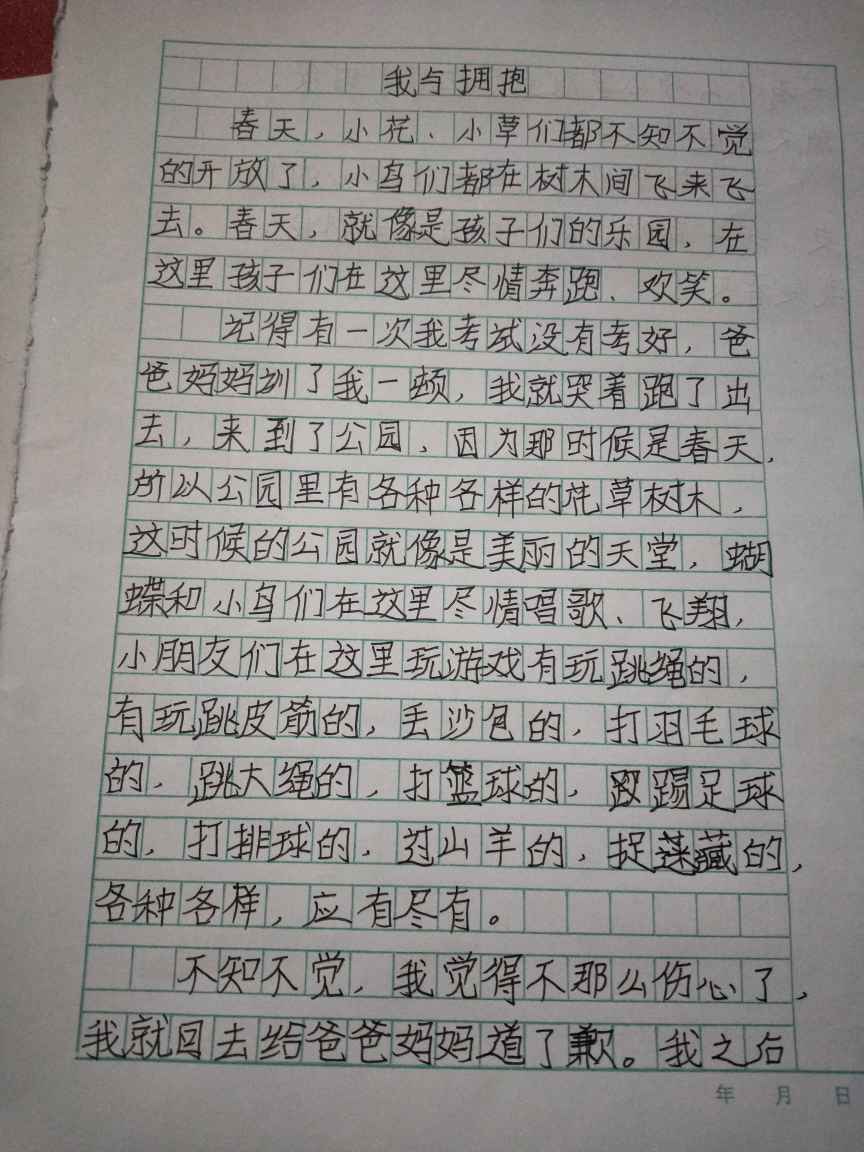 我与拥抱
春天，小花、小草们都不知不觉
的开放了，小鸟们都在树木间飞来飞
去。春天，就像是孩子们的乐园，在
这里孩子们在这里尽情奔跑、欢笑。
记得有一次我考试没有考好，爸
爸妈妈训了我一顿，我就哭着跑了出
去，来到了公园，因为那时候是春天，
所以公园里有各种各样的花草树木，
这时候的公园就像是美丽的天堂，蝴
蝶和小鸟们在这里尽情唱歌、飞翔，
小朋友们在这里玩游戏有玩跳绳的，
有玩跳皮筋的，丢沙包的，打羽毛球
的，跳大绳的，打篮球的，踢足球
的，打排球的，过山羊的，捉迷藏的，
各种各样，应有尽有。
不知不觉，我觉得不那么伤心了，
我就回去给爸爸妈妈道了歉。我之后
年 月 日